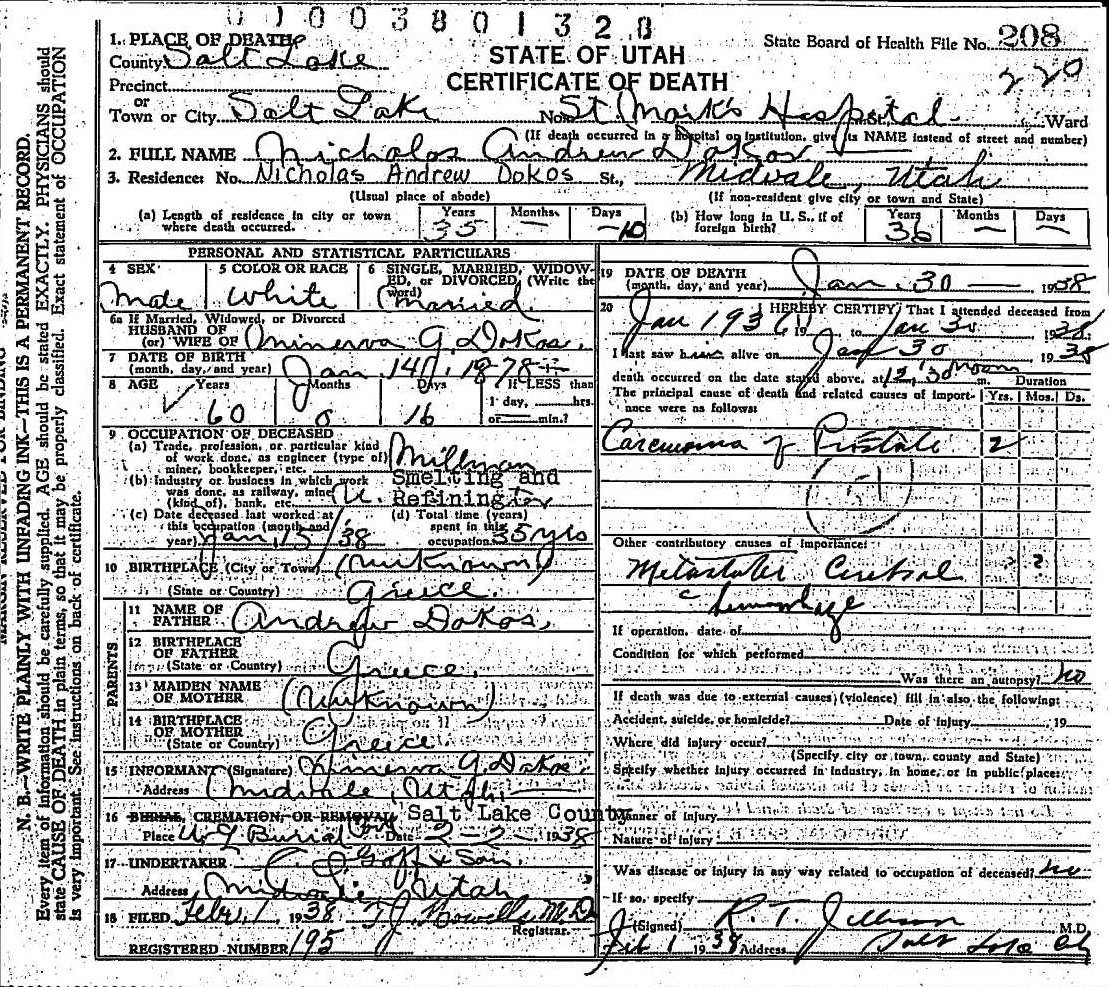 0100380132 0
1. PLACE OF DEATH
County Salt Lake
Precinct
or
Town or City Salt Lake
STATE OF UTAH
CERTIFICATE OF DEATH
State Board of Health File No. 208
220
No. St Mark's Hospital Ward
(If death occurred in a hospital or institution, give its NAME instead of street and number)
2. FULL NAME Nicholas Andrew Dokos
3. Residence: No. Nicholas Andrew Dokos St., Midvale, Utah
(Usual place of abode) (If non-resident give city or town and State)
(a) Length of residence in city or town where death occurred. Years 35 Months — Days -10
(b) How long in U. S., if of foreign birth? Years 36 Months — Days —
PERSONAL AND STATISTICAL PARTICULARS
4 SEX Male
5 COLOR OR RACE White
6 SINGLE, MARRIED, WIDOWED, or DIVORCED (Write the word) Married
6a If Married, Widowed, or Divorced
HUSBAND OF
(or) WIFE OF Minerva G. Dokos.
7 DATE OF BIRTH
(month, day, and year) Jan 14, 1878
8 AGE Years 60 Months 0 Days 16 If LESS than
1 day, hrs.
or min.?
9 OCCUPATION OF DECEASED
(a) Trade, profession, or particular kind
of work done, as engineer (type of)
miner, bookkeeper, etc. Millman
(b) Industry or business in which work
was done, as railway, mine
(kind of), bank, etc. Smelting and
Refining
(c) Date deceased last worked at
this occupation (month and
year) Jan, 15/'38
(d) Total time (years)
spent in this
occupation 35 yrs
10 BIRTHPLACE (City or Town) (Unknown)
(State or Country) Greece.
PARENTS
11 NAME OF
FATHER Andrew Dokos.
12 BIRTHPLACE
OF FATHER
(State or Country) Greece.
13 MAIDEN NAME
OF MOTHER (Unknown)
14 BIRTHPLACE
OF MOTHER
(State or Country) Greece.
15 INFORMANT (Signature) Minerva G. Dokos.
Address Midvale, Utah
16 BURIAL, CREMATION, OR REMOVAL, Salt Lake County
Place Burial Date 2-2- 1938
17 UNDERTAKER Goff & Son.
Address Midvale, Utah
18 FILED Febr. 1 1938 T.J. Howells M.D.
Registrar.
REGISTERED NUMBER 195
19 DATE OF DEATH
(month, day, and year) Jan. 30 — 1938
20 I HEREBY CERTIFY, That I attended deceased from
Jan 1936 19 to Jan 30 1938
I last saw him alive on Jan 30 1938
death occurred on the date stated above, at 12:30 noon m. Duration
The principal cause of death and related causes of importance were as follows: Yrs. Mos. Ds.
Carcinoma of Prostate 2
(51)
Other contributory causes of importance:
Metastates Cerebral ? ?
hemorrhage
If operation, date of
Condition for which performed
Was there an autopsy? no
If death was due to external causes (violence) fill in also the following:
Accident, suicide, or homicide? Date of injury 19
Where did injury occur?
(Specify city or town, county and State)
Specify whether injury occurred in industry, in home, or in public place:
Manner of injury
Nature of injury
Was disease or injury in any way related to occupation of deceased? no
If so, specify
(Signed) R. T. Jellison M.D.
Feb 1 1938 Address Salt Lake City
N. B.—WRITE PLAINLY WITH UNFADING INK—THIS IS A PERMANENT RECORD.
Every item of information should be carefully supplied. AGE should be stated EXACTLY. PHYSICIANS should
state CAUSE OF DEATH in plain terms, so that it may be properly classified. Exact statement of OCCUPATION
is very important. See instructions on back of certificate.